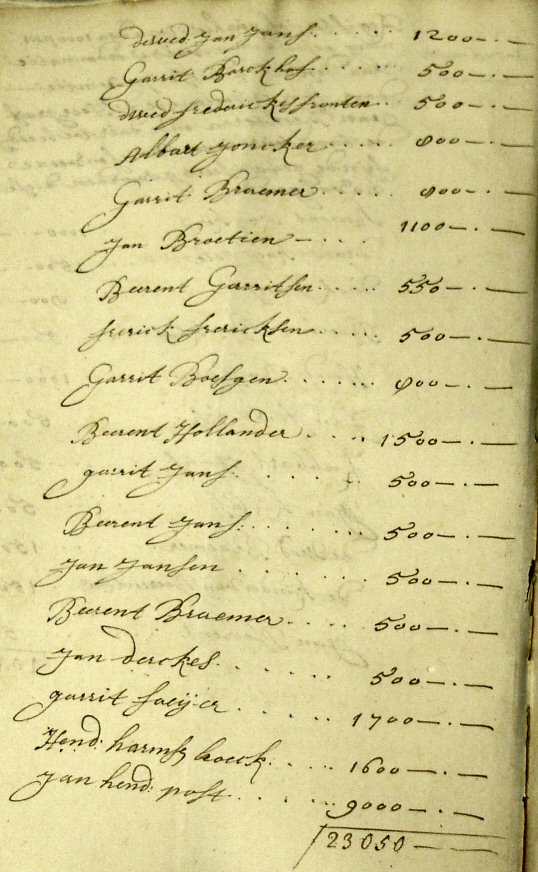 dewed Jan Jans..... 1200—.—
Garrit Borckhof...... 500—.—
dewed frederickes fronten.. 500—.—
Albart Joncker..... 800—.—
Garrit Braemer.... 800—.—
Jan Broetien—.... 1100—.—
Beerent Garritsen..... 550—.—
frerick frericksen..... 500—.—
Garrit Boesgen...... 800—.—
Beerent Hollander.... 1500—.—
garrit Jans...... 500—.—
Beerent Jans...... 500—.—
Jan Jansen...... 500—.—
Beerent Braemer..... 500—.—
Jan derckes...... 500—.—
garrit..... 1700—.—
Hend: harms.... 1600—.—
Jan hend: post...... 9000—.—
23050——